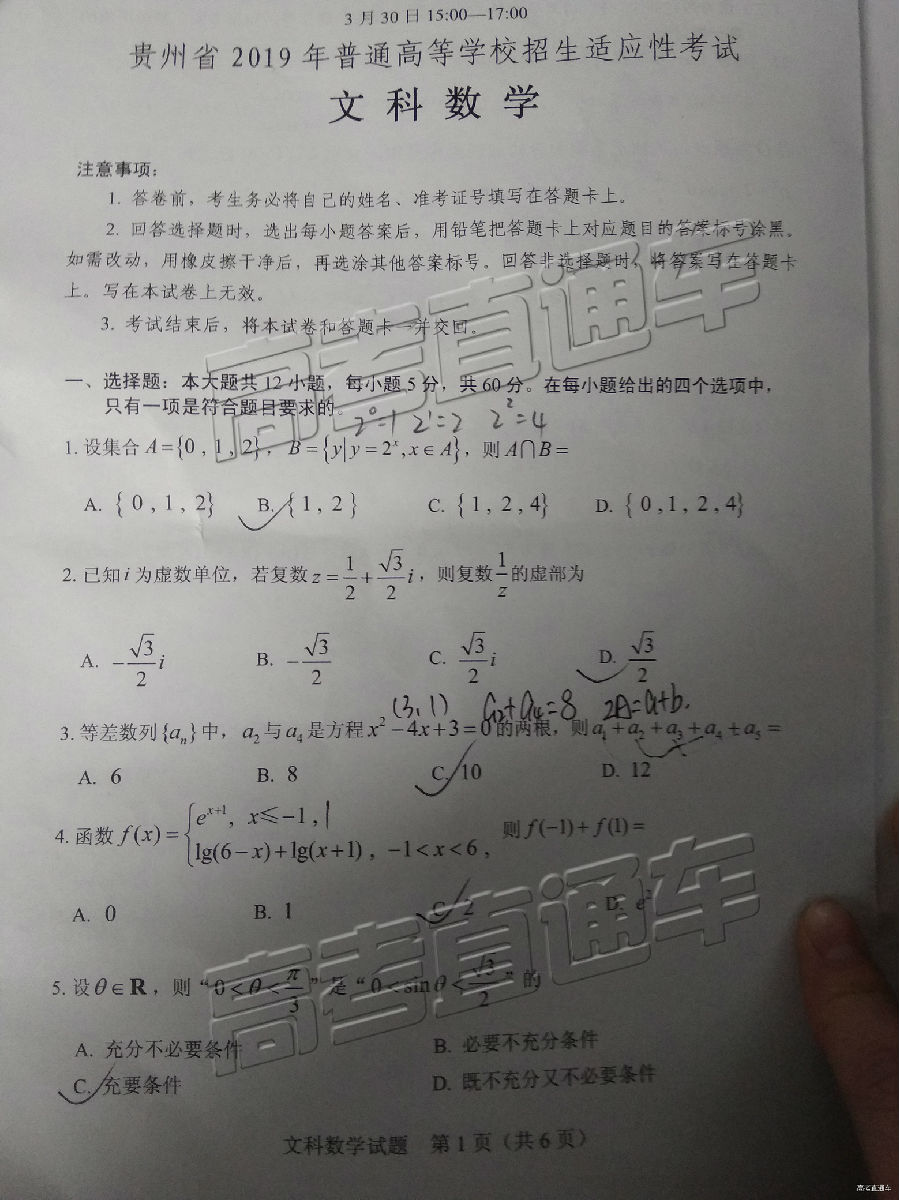 3月30日15:00—17:00
贵州省2019年普通高等学校招生适应性考试
文科数学
注意事项：
1. 答卷前，考生务必将自己的姓名、准考证号填写在答题卡上。
2. 回答选择题时，选出每小题答案后，用铅笔把答题卡上对应题目的答案标号涂黑。
如需改动，用橡皮擦干净后，再选涂其他答案标号。回答非选择题时，将答案写在答题卡
上。写在本试卷上无效。
3. 考试结束后，将本试卷和答题卡一并交回。
高考直通车
一、选择题：本大题共12小题，每小题5分，共60分。在每小题给出的四个选项中，
只有一项是符合题目要求的。
2⁰=1 2¹=2 2²=4
1. 设集合 A={0，1，2}，B={y|y=2ˣ,x∈A}，则A∩B=
A. {0，1，2} B. {1，2} C. {1，2，4} D. {0，1，2，4}
2. 已知i为虚数单位，若复数z=1/2+√3/2 i，则复数1/z的虚部为
A. -√3/2 i B. -√3/2 C. √3/2 i D. √3/2
(3,1) a₂+a₄=8 2A=a+b.
3. 等差数列{aₙ}中，a₂与a₄是方程x²-4x+3=0的两根，则a₁+a₂+a₃+a₄+a₅=
A. 6 B. 8 C. 10 D. 12
4. 函数f(x)={eˣ⁺¹，x≤-1，
lg(6-x)+lg(x+1)，-1<x<6， 则f(-1)+f(1)=
A. 0 B. 1 C. 2 D. e²
高考直通车
5. 设θ∈R，则“0<θ<π/3”是“0<sinθ<√3/2”的
A. 充分不必要条件 B. 必要不充分条件
C. 充要条件 D. 既不充分又不必要条件
文科数学试题 第1页（共6页）
高考直通车